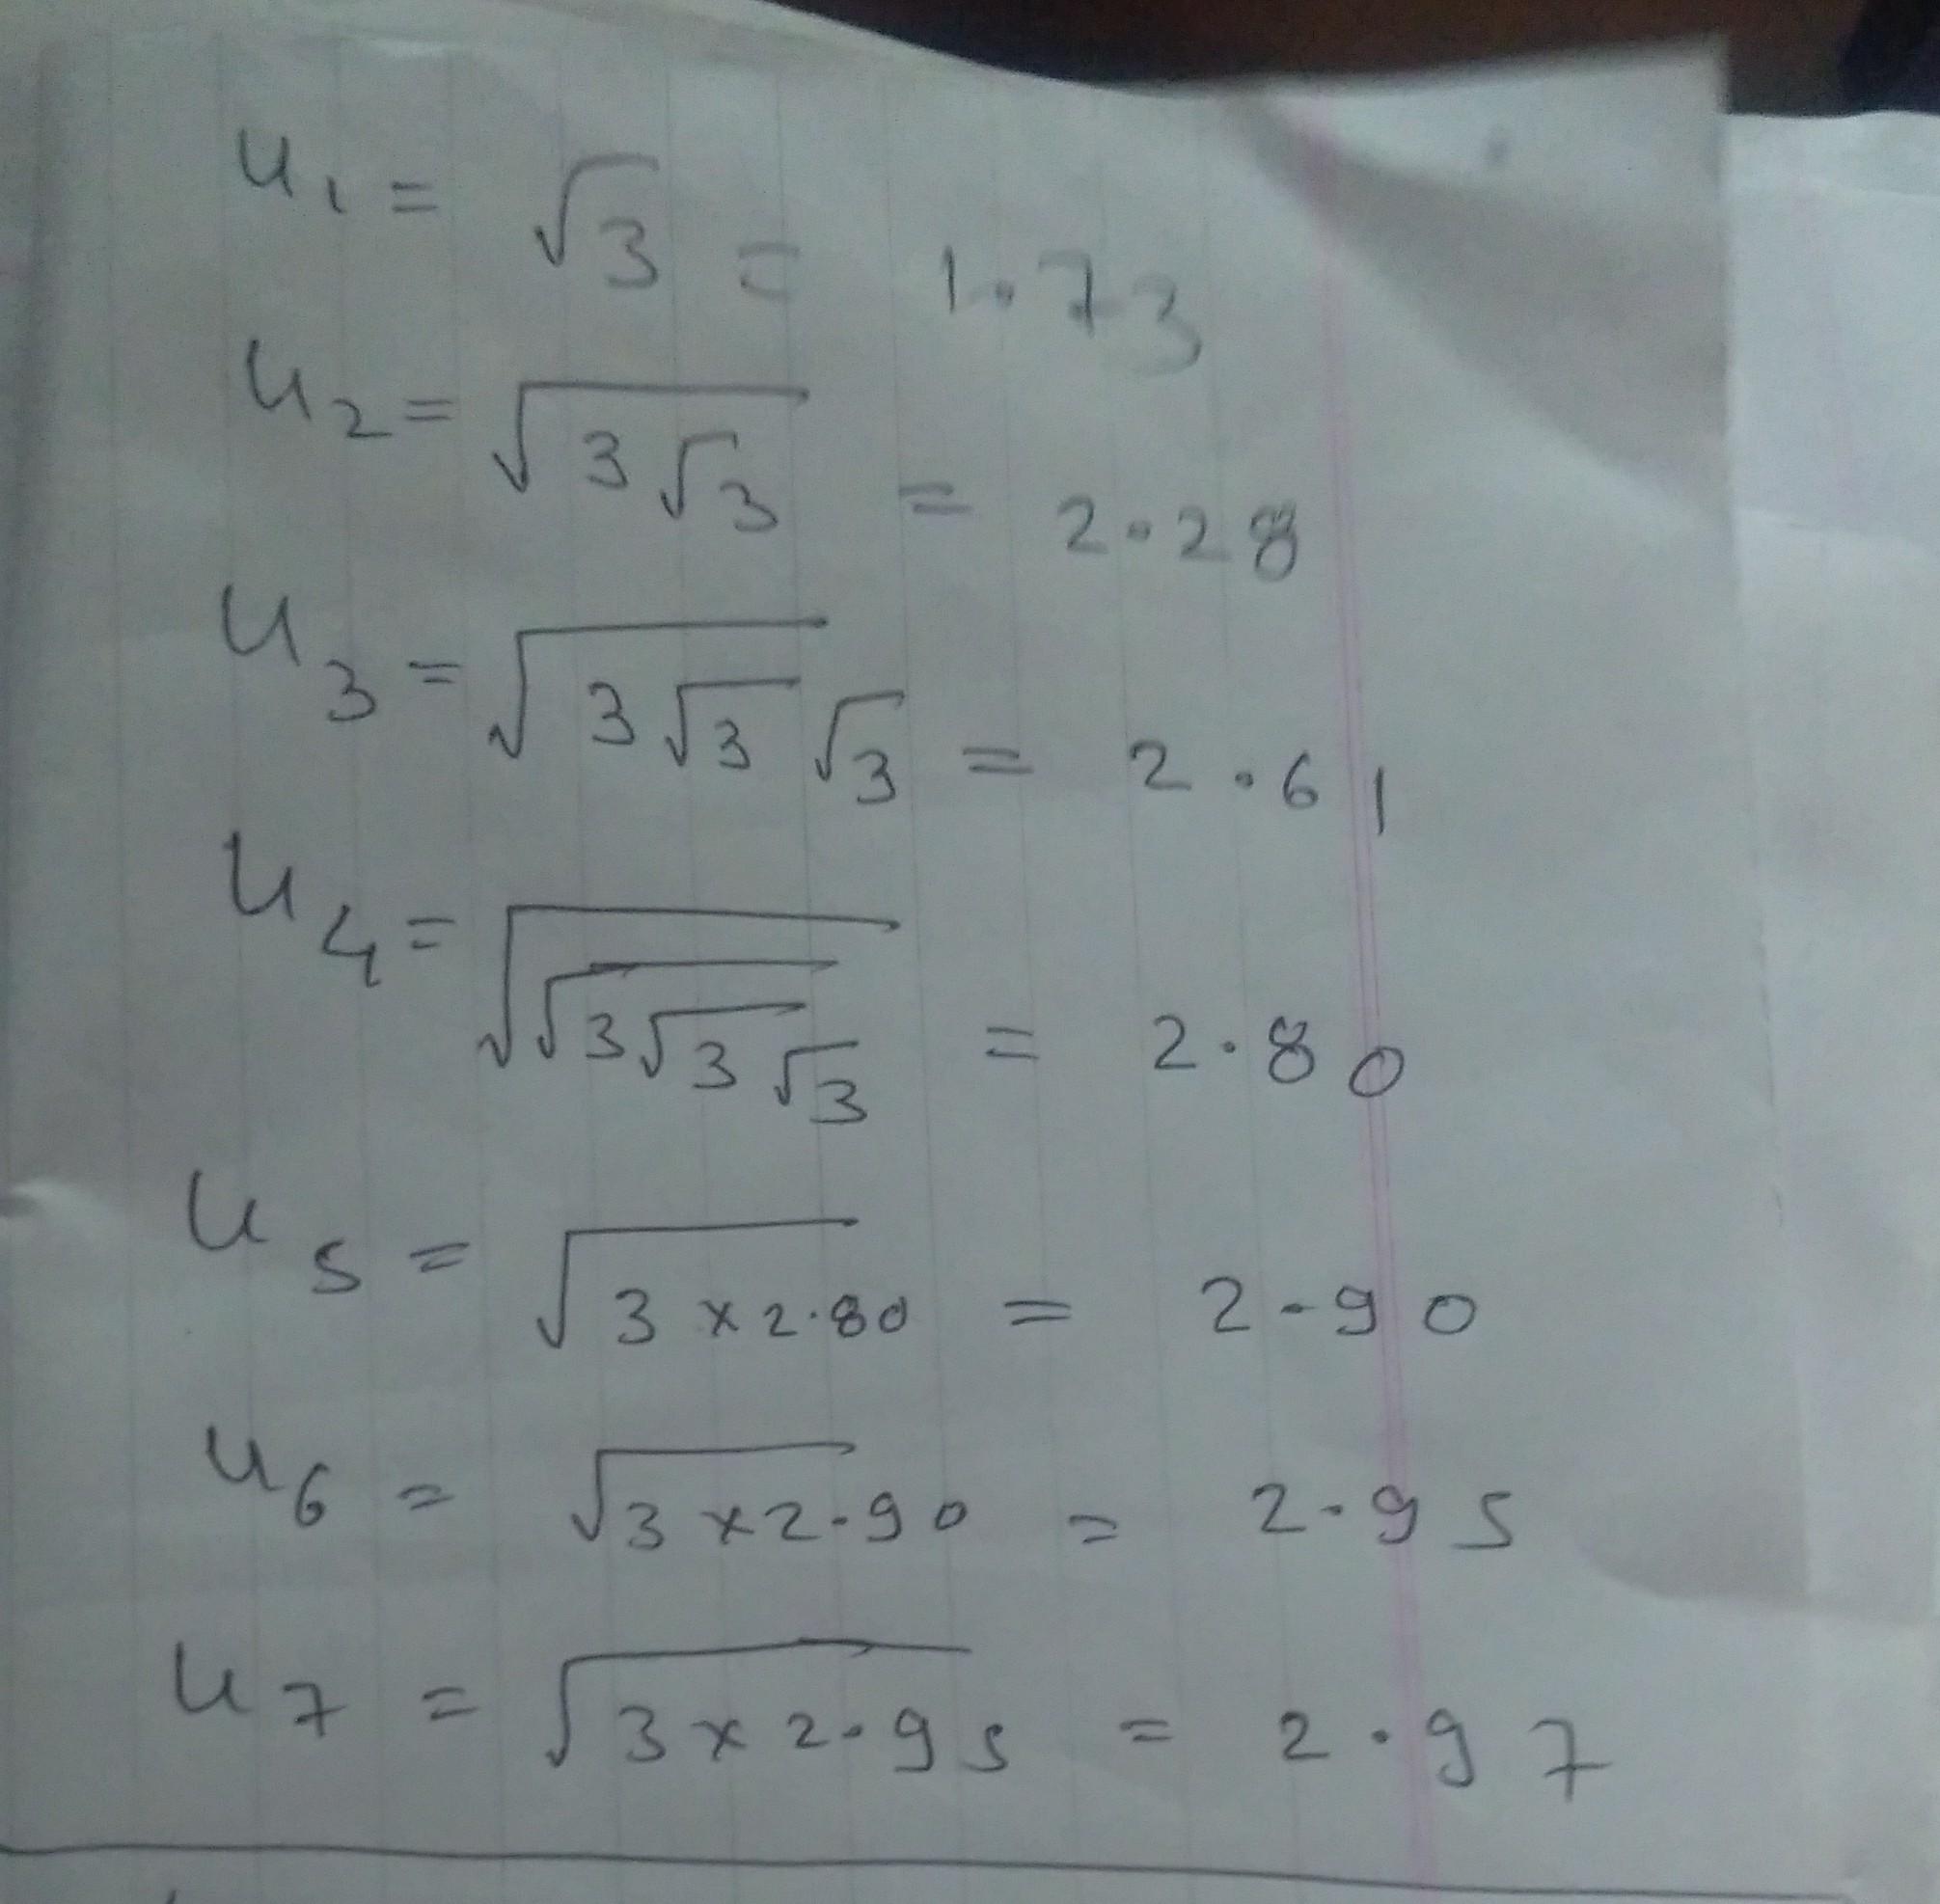 u₁ = √3 = 1.73
u₂ = √(3√3) = 2.28
u₃ = √(3√3)√3 = 2.61
u₄ = √(√(3√(3√3))) = 2.80
u₅ = √(3 × 2.80) = 2.90
u₆ = √(3 × 2.90) = 2.95
u₇ = √(3 × 2.95) = 2.97